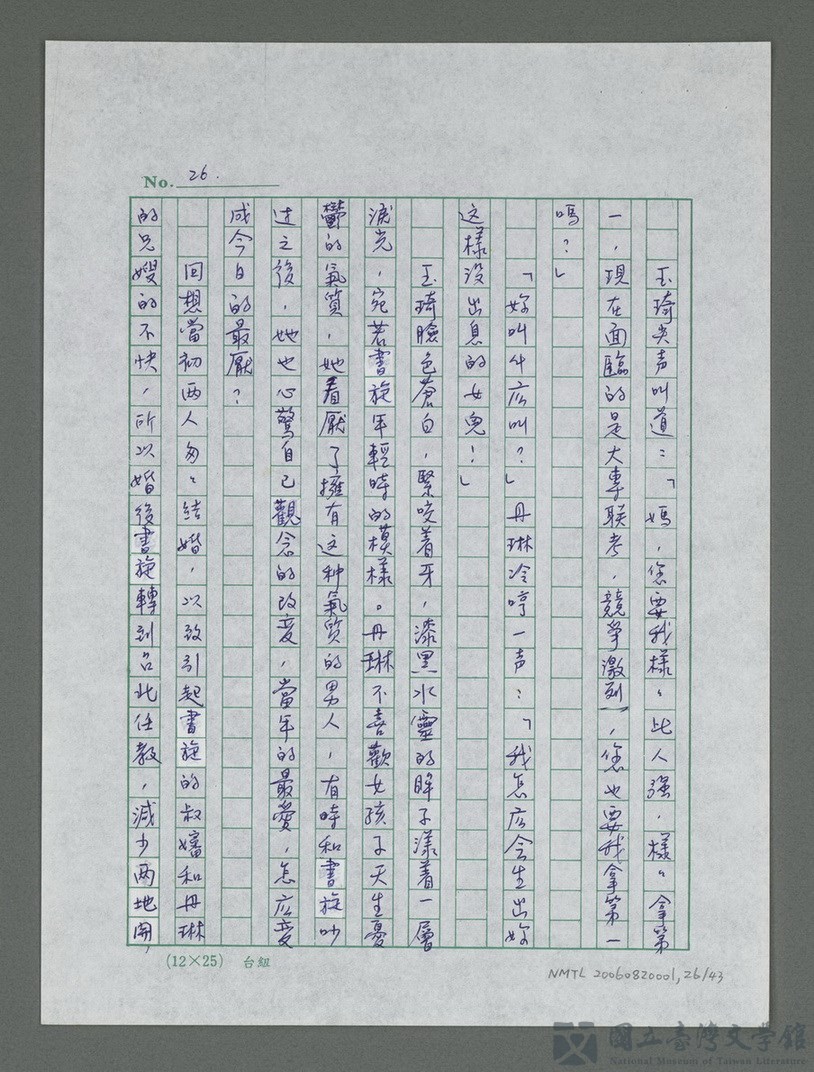 No. 26.
玉琦尖声叫道：「媽，您要我樣〻比人強，樣〻拿第
一，現在面臨的是大專联考，競爭激列，您也要我拿第一
嗎？」
「妳叫什広叫？」丹琳冷哼一声：「我怎広会生出妳
这樣没出息的女兒！」
玉琦臉色蒼白，緊咬着牙，漆黑水靈的眸子漾着一層
淚光，宛若書旋年輕時的模樣。丹琳不喜歡女孩子天生憂
鬱的氣質，她看厭了擁有这种氣质的男人，有時和書旋吵
过之後，她也心驚自己觀念的改变，當年的最愛，怎広变
成今日的最厭？
回想當初两人匆〻結婚，以致引起書旋的叔嬸和丹琳
的兄嫂的不快，所以婚後書旋轉到台北任教，減少两地開，
(12×25) 台紐
NMTL 20060820001, 26/43
國立臺灣文學館
National Museum of Taiwan Literature